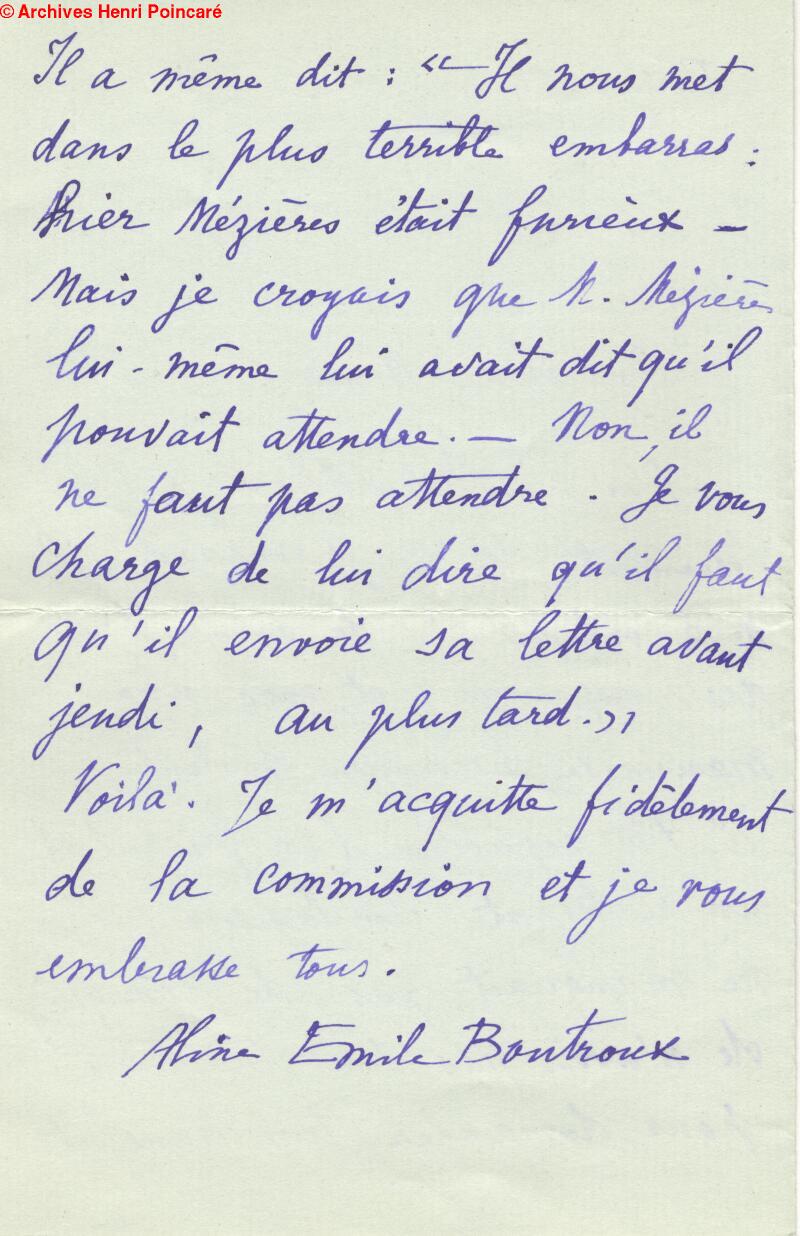 © Archives Henri Poincaré
Il a même dit : « Il nous met
dans le plus terrible embarras :
hier Mézières était furieux —
Mais je croyais que M. Mézières
lui-même lui avait dit qu'il
pouvait attendre. — Non, il
ne faut pas attendre. Je vous
charge de lui dire qu'il faut
qu'il envoie sa lettre avant
jeudi, au plus tard. »
Voilà. Je m'acquitte fidèlement
de la commission et je vous
embrasse tous.
Aline Emile Boutroux